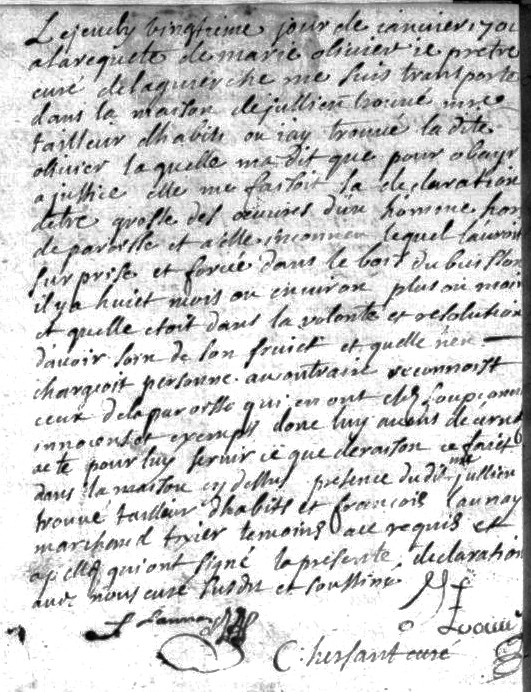 Le jeudy vingtieme jour de janvier 1701
a la requete de marie olivier je pretre
curé de laguierche me suis transporté
dans la maison de jullien trouvé mre
tailleur dhabits ou jay trouvé la dite
olivier laquelle ma dit que pour obeyr
a justice elle me faisoit la declaration
detre grosse des oeuvres dun homme hors
de paroisse et a elle inconneu lequel lauroit
surprise et forcée dans le bois du buisson
il y a huict mois ou environ plus ou moins
et quelle etoit dans la volonté et resolution
davoir soin de son fruict et quelle nen
chargeoit personne au contraire reconnoist
ceux de la paroisse qui en ont etés soupçonnés
innocents et exempts donc luy avons decerné
acte pour luy servir ce que de raison ce faict
dans la maison cy dessus presence du dit jullien
trouvé mre tailleur dhabits et françois launay
marchand tixier temoins a ce requis et
apellés qui ont signé la presente declaration
avec nous curé susdit et soussigné
f Launay
C: hersant curé